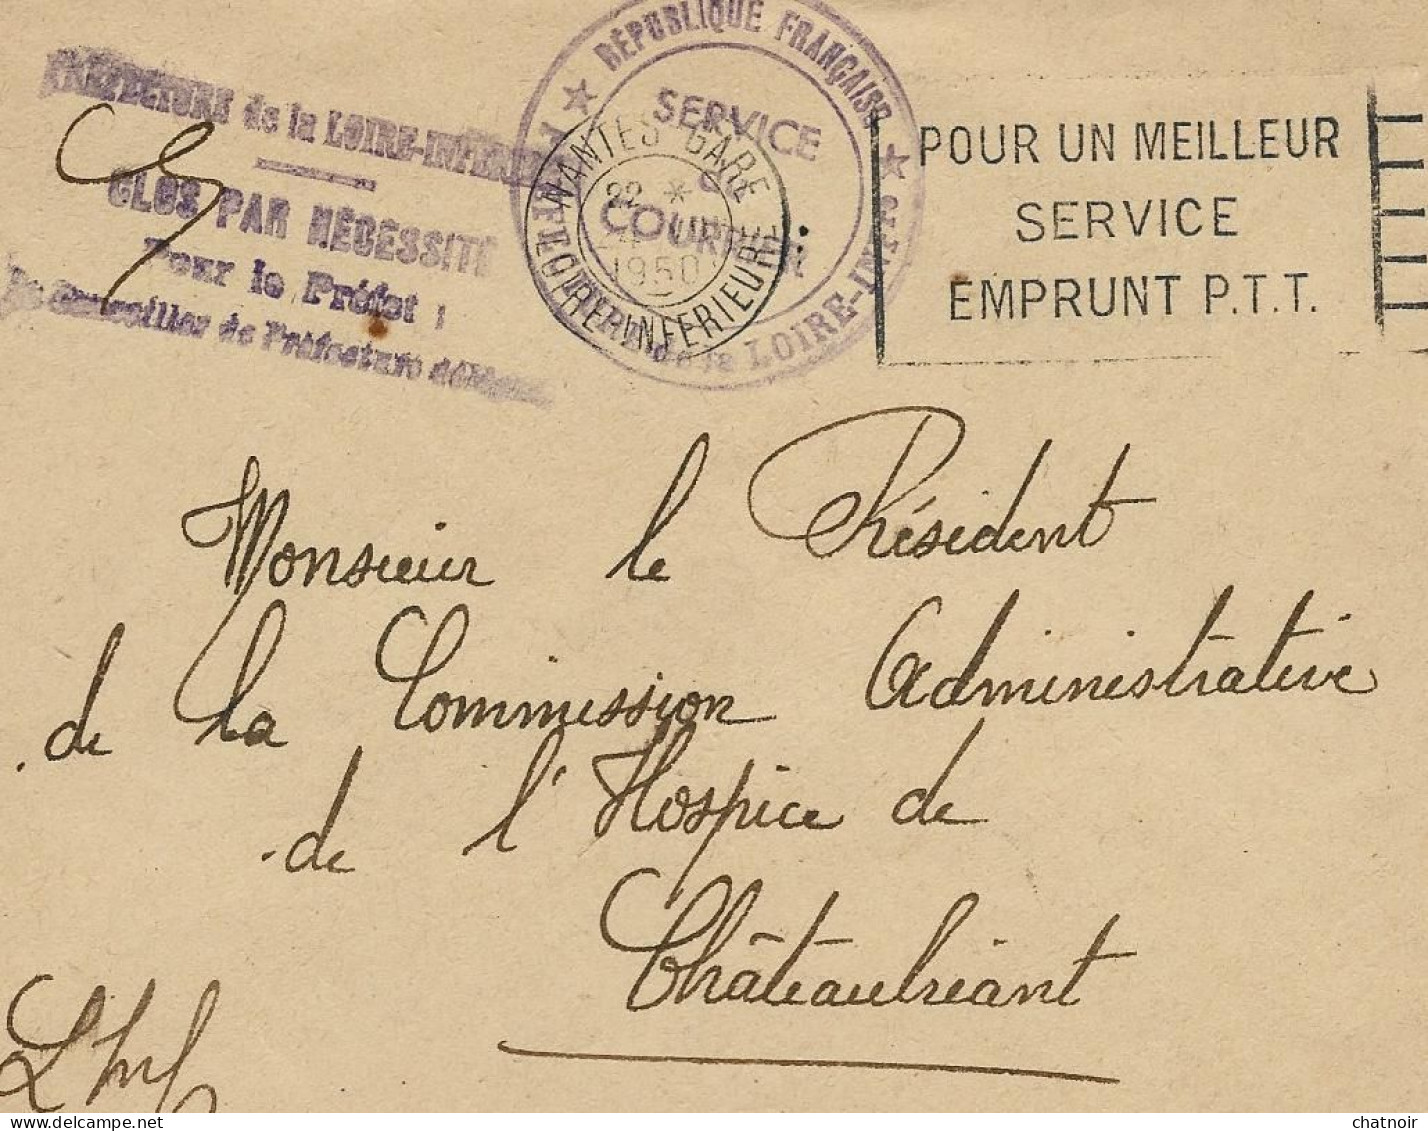 PRÉFECTURE de la LOIRE-INFÉRIEURE
CLOS PAR NÉCESSITÉ
Pour le Préfet :
Le Conseiller de Préfecture délégué
RÉPUBLIQUE FRANÇAISE
SERVICE
COURRIER
de la LOIRE-INFre
NANTES GARE
22 *
1950
LOIRE INFERIEURE
POUR UN MEILLEUR
SERVICE
EMPRUNT P.T.T.
Monsieur le Président
de la Commission Administrative
de l'Hospice de
Châteaubriant
delcampe.net
chatnoir